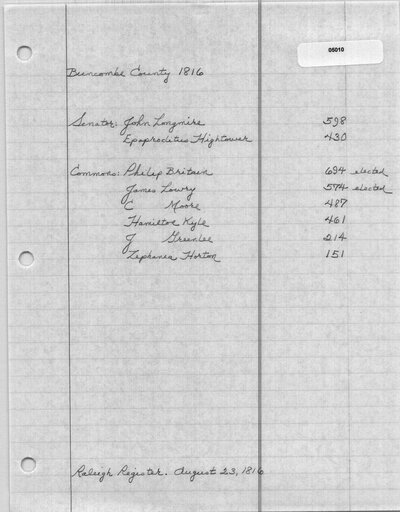 05010
Buncombe County 1816
Senate: John Longmire 598
Epaproditus Hightower 430
Commons: Philip Britain 694 elected
James Lowry 574 elected
C Moore 487
Hamilton Kyle 461
J Greenlee 214
Zephanea Horton 151
Raleigh Register. August 23, 1816